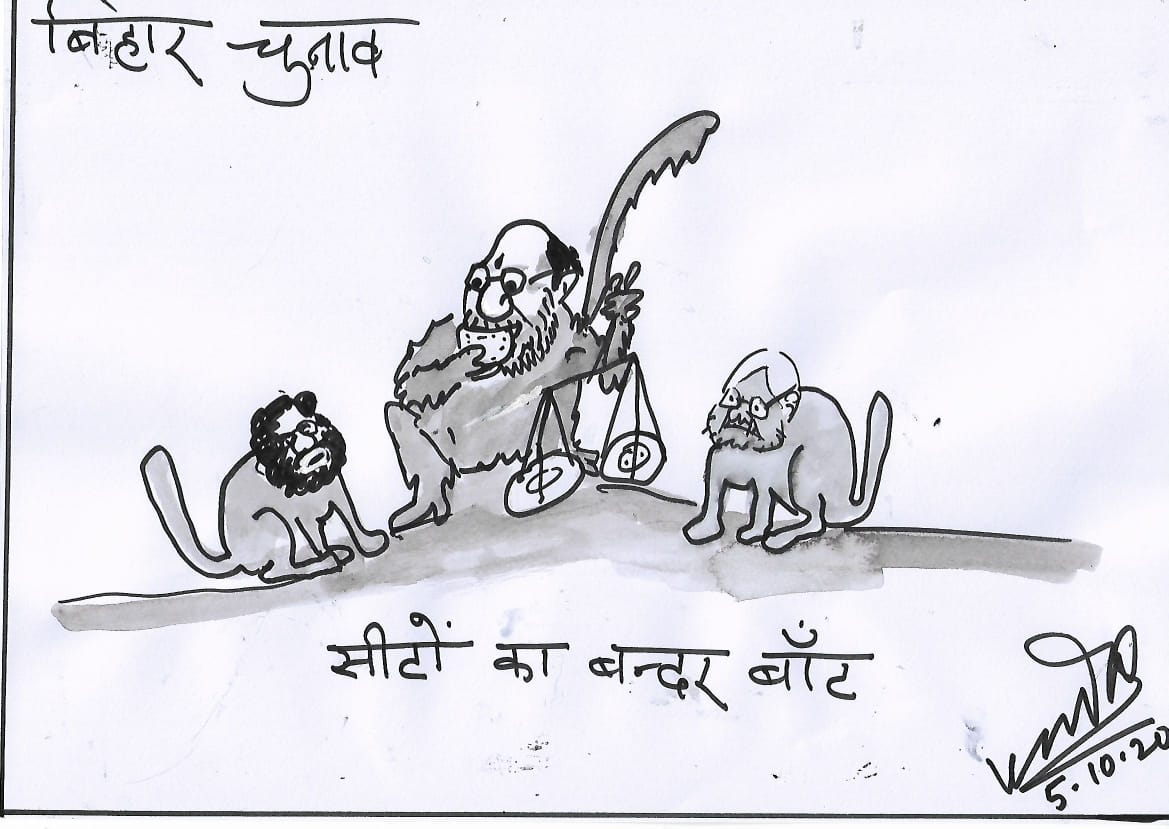 बिहार चुनाव
सीटों का बन्दर बाँट
5.10.20